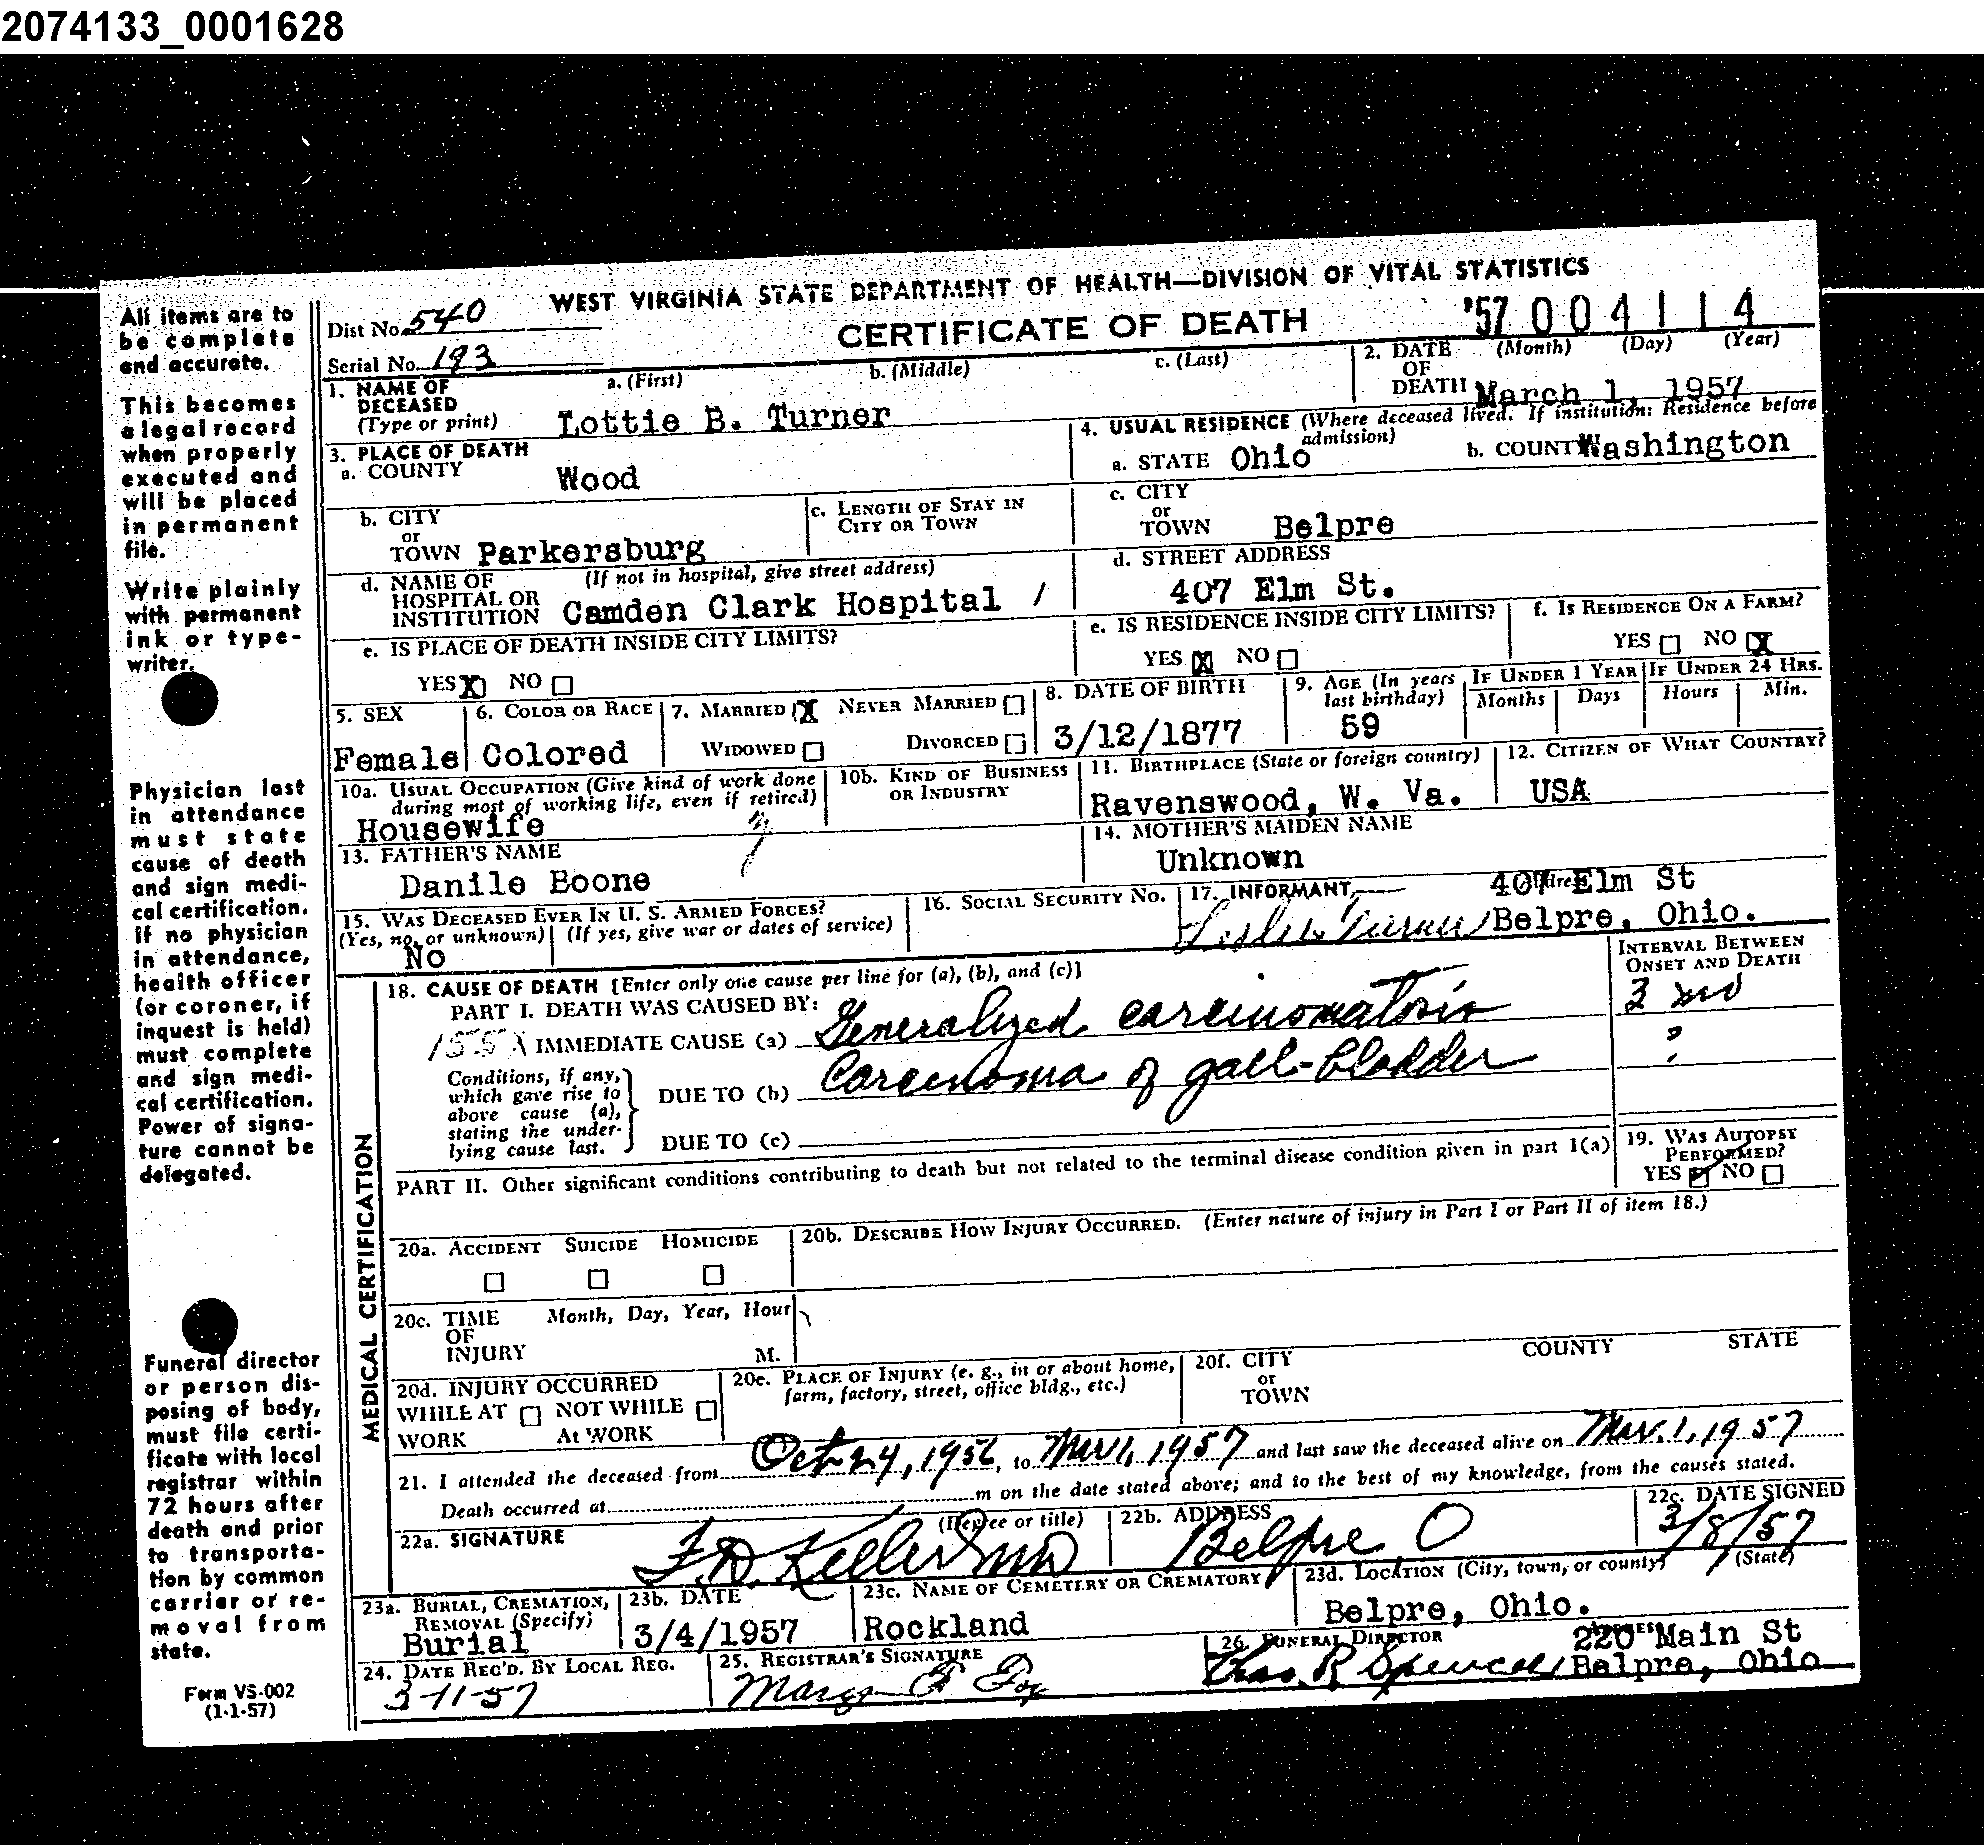 2074133_0001628
WEST VIRGINIA STATE DEPARTMENT OF HEALTH—DIVISION OF VITAL STATISTICS
CERTIFICATE OF DEATH
'57 004114
Dist No. 540
Serial No. 193
All items are to
be complete
and accurate.
This becomes
a legal record
when properly
executed and
will be placed
in permanent
file.
Write plainly
with permanent
ink or type-
writer.
Physician last
in attendance
must state
cause of death
and sign medi-
cal certification.
If no physician
in attendance,
health officer
(or coroner, if
inquest is held)
must complete
and sign medi-
cal certification.
Power of signa-
ture cannot be
delegated.
Funeral director
or person dis-
posing of body,
must file certi-
ficate with local
registrar within
72 hours after
death and prior
to transporta-
tion by common
carrier or re-
moval from
state.
Form VS-002
(1-1-57)
1. NAME OF DECEASED (Type or print)
a. (First) b. (Middle) c. (Last)
Lottie B. Turner
2. DATE OF DEATH (Month) (Day) (Year)
March 1, 1957
3. PLACE OF DEATH
a. COUNTY Wood
4. USUAL RESIDENCE (Where deceased lived. If institution: Residence before admission)
a. STATE Ohio b. COUNTY Washington
b. CITY or TOWN Parkersburg
c. LENGTH OF STAY IN CITY OR TOWN
c. CITY or TOWN Belpre
d. NAME OF HOSPITAL OR INSTITUTION (If not in hospital, give street address)
Camden Clark Hospital /
d. STREET ADDRESS
407 Elm St.
e. IS PLACE OF DEATH INSIDE CITY LIMITS?
YES X NO
e. IS RESIDENCE INSIDE CITY LIMITS?
YES X NO
f. IS RESIDENCE ON A FARM?
YES NO X
5. SEX Female
6. COLOR OR RACE Colored
7. MARRIED X NEVER MARRIED
WIDOWED DIVORCED
8. DATE OF BIRTH 3/12/1877
9. AGE (In years last birthday) 59
IF UNDER 1 YEAR Months Days
IF UNDER 24 HRS. Hours Min.
10a. USUAL OCCUPATION (Give kind of work done during most of working life, even if retired)
Housewife
10b. KIND OF BUSINESS OR INDUSTRY
11. BIRTHPLACE (State or foreign country)
Ravenswood, W. Va.
12. CITIZEN OF WHAT COUNTRY?
USA
13. FATHER'S NAME
Danile Boone
14. MOTHER'S MAIDEN NAME
Unknown
15. WAS DECEASED EVER IN U. S. ARMED FORCES?
(Yes, no, or unknown) (If yes, give war or dates of service)
No
16. SOCIAL SECURITY No.
17. INFORMANT Address
Leslie Turner 407 Elm St
Belpre, Ohio.
MEDICAL CERTIFICATION
18. CAUSE OF DEATH [Enter only one cause per line for (a), (b), and (c)]
INTERVAL BETWEEN ONSET AND DEATH
PART I. DEATH WAS CAUSED BY:
155X IMMEDIATE CAUSE (a) Generalized carcinomatosis 3 mo
Conditions, if any, which gave rise to above cause (a), stating the under-lying cause last.
DUE TO (b) Carcinoma of gall-bladder ?
DUE TO (c)
PART II. Other significant conditions contributing to death but not related to the terminal disease condition given in part I(a)
19. WAS AUTOPSY PERFORMED?
YES NO
20a. ACCIDENT SUICIDE HOMICIDE
20b. DESCRIBE HOW INJURY OCCURRED. (Enter nature of injury in Part I or Part II of item 18.)
20c. TIME OF INJURY Month, Day, Year, Hour
M.
20d. INJURY OCCURRED
WHILE AT WORK NOT WHILE At WORK
20e. PLACE OF INJURY (e. g., in or about home, farm, factory, street, office bldg., etc.)
20f. CITY or TOWN COUNTY STATE
21. I attended the deceased from Oct 24, 1956, to Mar 1, 1957 and last saw the deceased alive on Mar. 1, 1957
Death occurred at m on the date stated above; and to the best of my knowledge, from the causes stated.
22a. SIGNATURE (Degree or title)
22b. ADDRESS
Belpre O
22c. DATE SIGNED
3/8/57
23a. BURIAL, CREMATION, REMOVAL (Specify)
Burial
23b. DATE
3/4/1957
23c. NAME OF CEMETERY OR CREMATORY
Rockland
23d. LOCATION (City, town, or county) (State)
Belpre, Ohio.
24. DATE REC'D. BY LOCAL REG.
3-11-57
25. REGISTRAR'S SIGNATURE
26. FUNERAL DIRECTOR ADDRESS
Chas. R Spencer 220 Main St
Belpre, Ohio